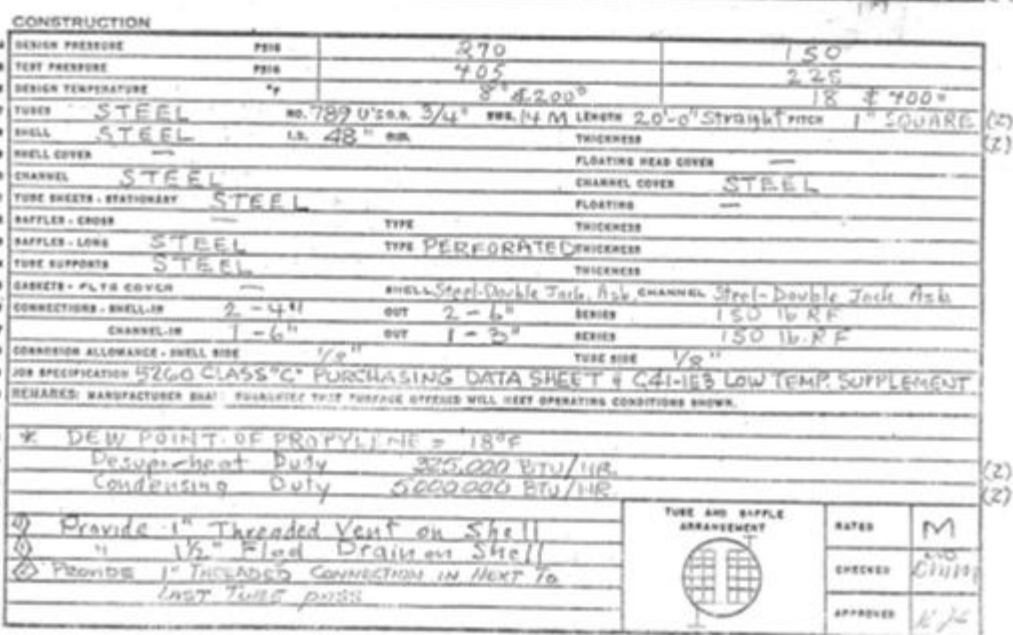 CONSTRUCTION
DESIGN PRESSURE PSIG 270 150
TEST PRESSURE PSIG 405 225
DESIGN TEMPERATURE °F 8° & 200° 18 & 400°
TUBES STEEL NO. 789 U's O.D. 3/4" BWG. 14 M LENGTH 20'-0" Straight PITCH 1" SQUARE (2)
SHELL STEEL I.D. 48" THICKNESS (2)
SHELL COVER — FLOATING HEAD COVER —
CHANNEL STEEL CHANNEL COVER STEEL
TUBE SHEETS - STATIONARY STEEL FLOATING —
BAFFLES - CROSS — TYPE THICKNESS
BAFFLES - LONG STEEL TYPE PERFORATED THICKNESS
TUBE SUPPORTS STEEL THICKNESS
GASKETS - FLTG COVER — SHELL Steel-Double Jack. Asb. CHANNEL Steel-Double Jack Asb
CONNECTIONS - SHELL-IN 2 - 4" OUT 2 - 6" SERIES 150 lb RF
CHANNEL-IN 1 - 6" OUT 1 - 3" SERIES 150 lb. RF
CORROSION ALLOWANCE - SHELL SIDE 1/8" TUBE SIDE 1/8"
JOB SPECIFICATION 5260 CLASS "C" PURCHASING DATA SHEET & C41-1E3 LOW TEMP. SUPPLEMENT
REMARKS: MANUFACTURER GUARANTEE THAT SURFACE OFFERED WILL MEET OPERATING CONDITIONS SHOWN.
* DEW POINT OF PROPYLENE = 18°F
Desuperheat Duty 325,000 BTU/HR. (2)
Condensing Duty 5000000 BTU/HR (2)
Provide 1" Threaded Vent on Shell
" 1 1/2" Flgd Drain on Shell
PROVIDE 1" THREADED CONNECTION IN NEXT TO
LAST TUBE PASS
TUBE AND BAFFLE
ARRANGEMENT
RATED M
CHECKED
APPROVED